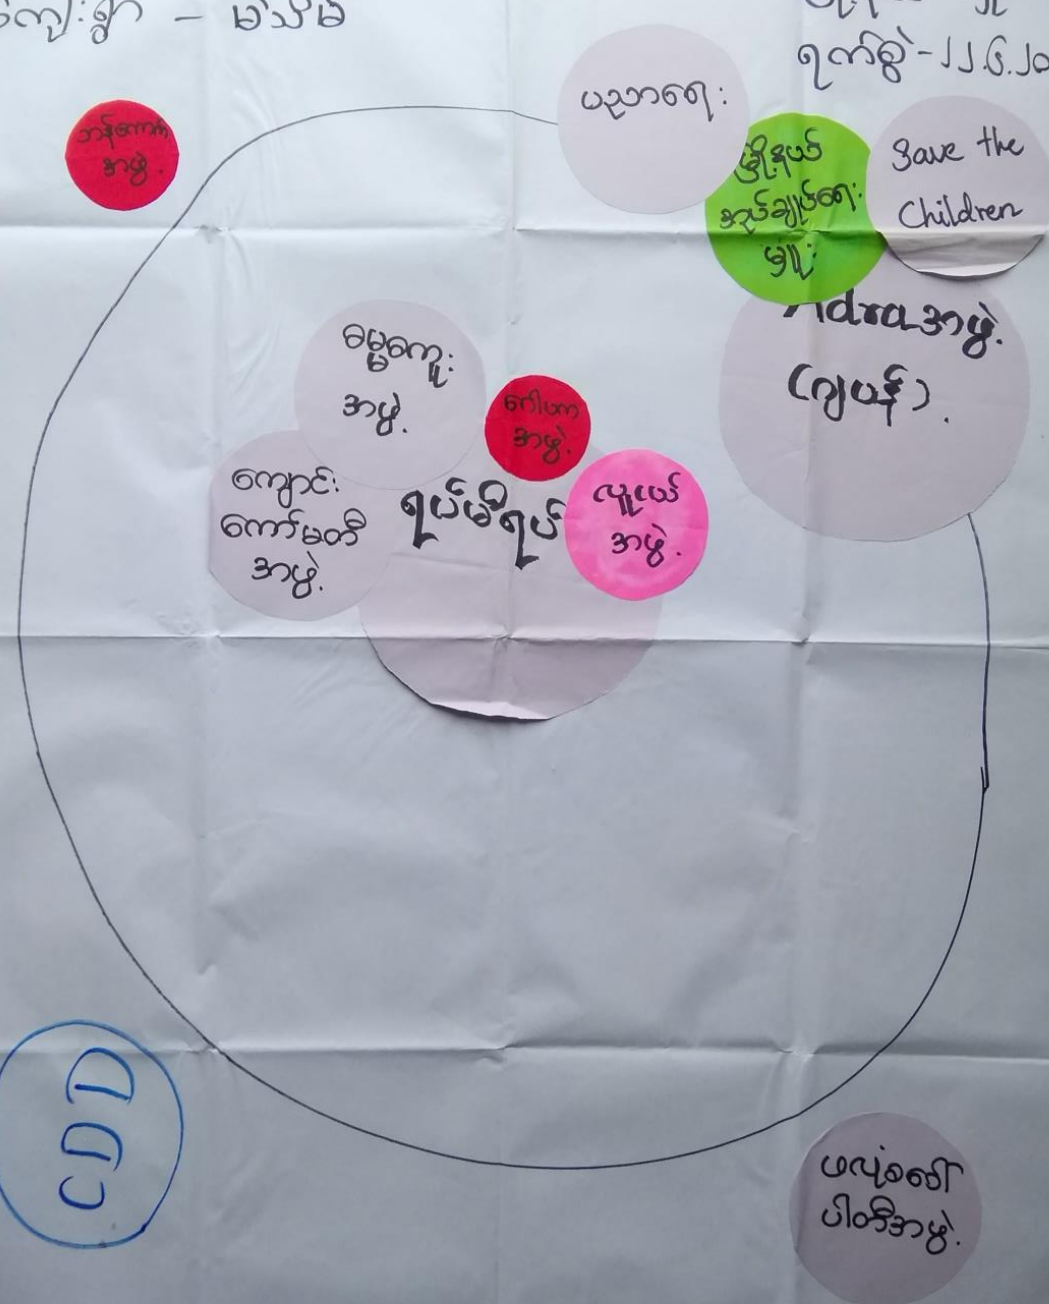 ကျေးရွာ - မဲသိမ်
ရက်စွဲ - ၂၂.၆.၂၀
ပညာရေး
ဘန်ကောက်
အဖွဲ့.
မြို့နယ်
အုပ်ချုပ်ရေး
မှူး
Save the
Children
Adra အဖွဲ့.
(ဂျပန်).
ဓမ္မစကူး
အဖွဲ့.
ဂေါပက
အဖွဲ့.
ကျောင်း
ကော်မတီ
အဖွဲ့.
ရပ်မိရပ်
လူငယ်
အဖွဲ့.
CDD
ဖလုံစဝေါ်
ပါတီအဖွဲ့.